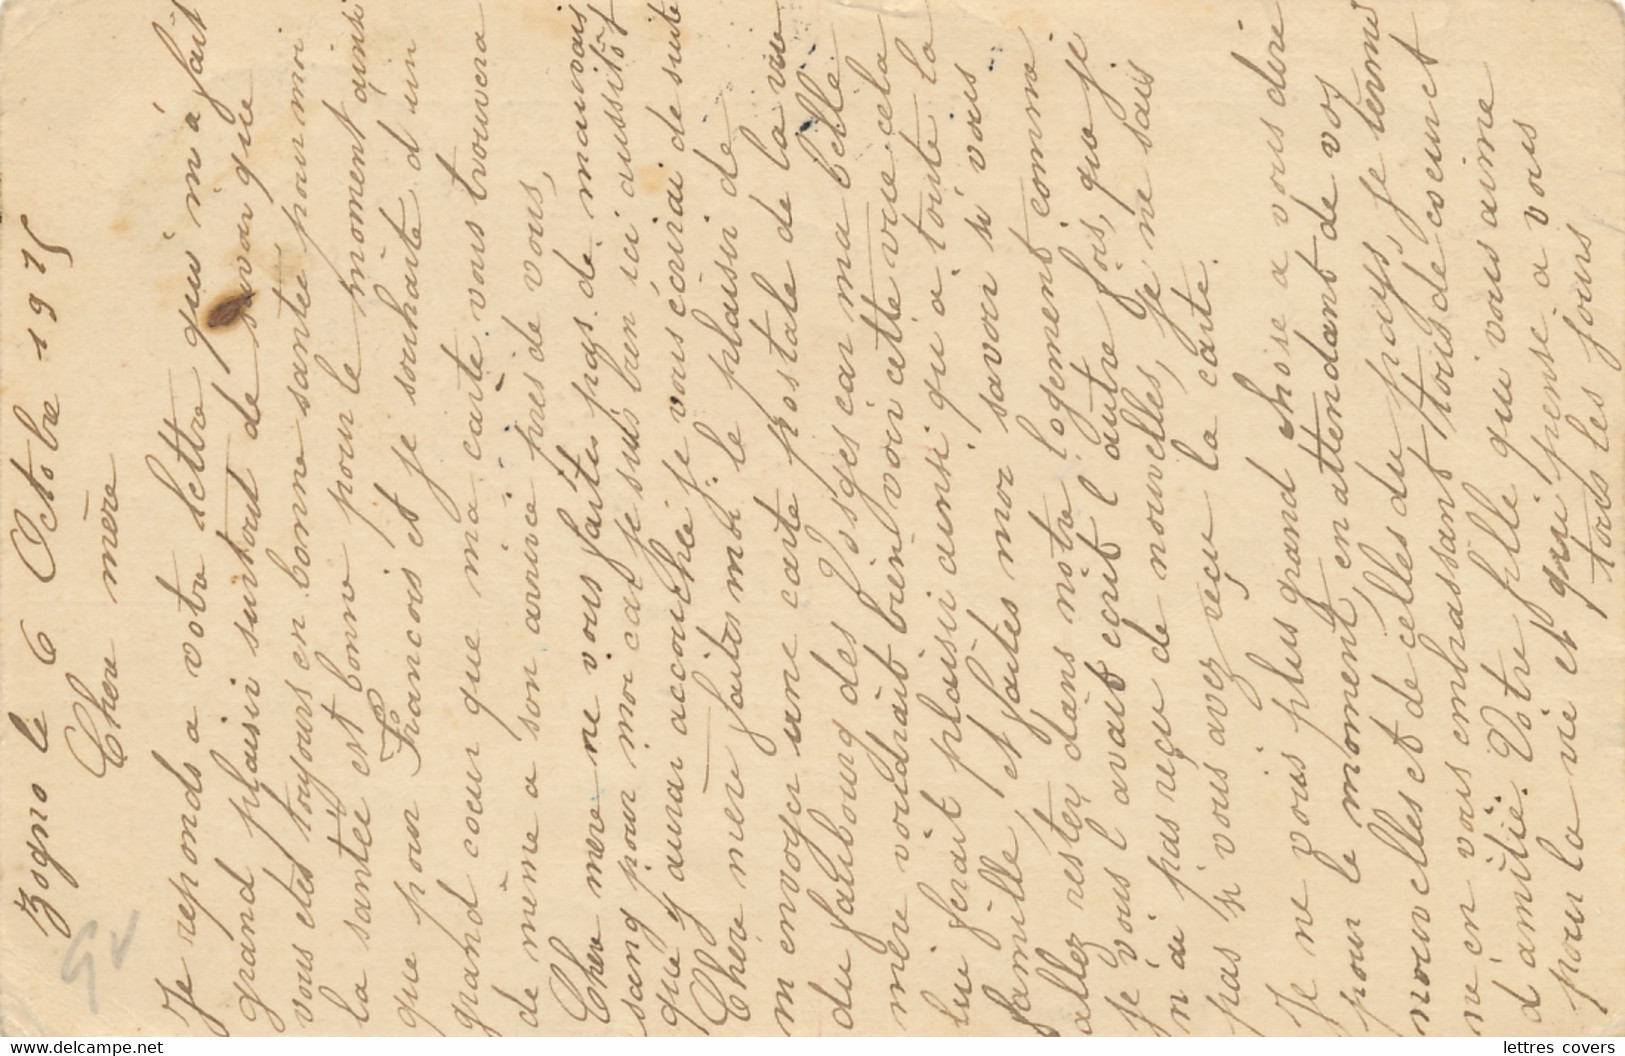 Zogno le 6 Octobre 1915
Cher mère
Je reponds a votre lettre qui m'a fait
grand plaisir surtout de savoir que
vous etes toujours en bonne santée pour moi
la santée est bonne pour le moment ainsi
que pour Francois et je souhaite d'un
grand coeur que ma carte vous trouvera
de même a son arrivée pres de vous,
Cher mere ne vous faites pas de mauvais
sang pour moi car je suis bien ici aussitôt
que j'aurai accouchée je vous écrirai de suite
Cher mer faites moi le plaisir de
m envoyer une carte postale de la vue
du faubourg des Vosges car ma belle
mère voudrait bien voir cette vue cela
lui ferait plaisir ainsi qu a toute la
famille, et faites moi savoir si vous
allez rester dans notre logement comme
je vous l'avait ecrit l'autre fois, que je
n'ai pas reçu de nouvelles, je ne sais
pas si vous avez reçu la carte.
Je ne vois plus grand chose a vous dire
pour le moment, en attendant de vos
nouvelles et de celles du pays, je termine
en vous embrassant tous de coeur et
d'amitié. Votre fille qui vous aime
pour la vie et qui pense a vous
tous les jours
GV
lettres covers